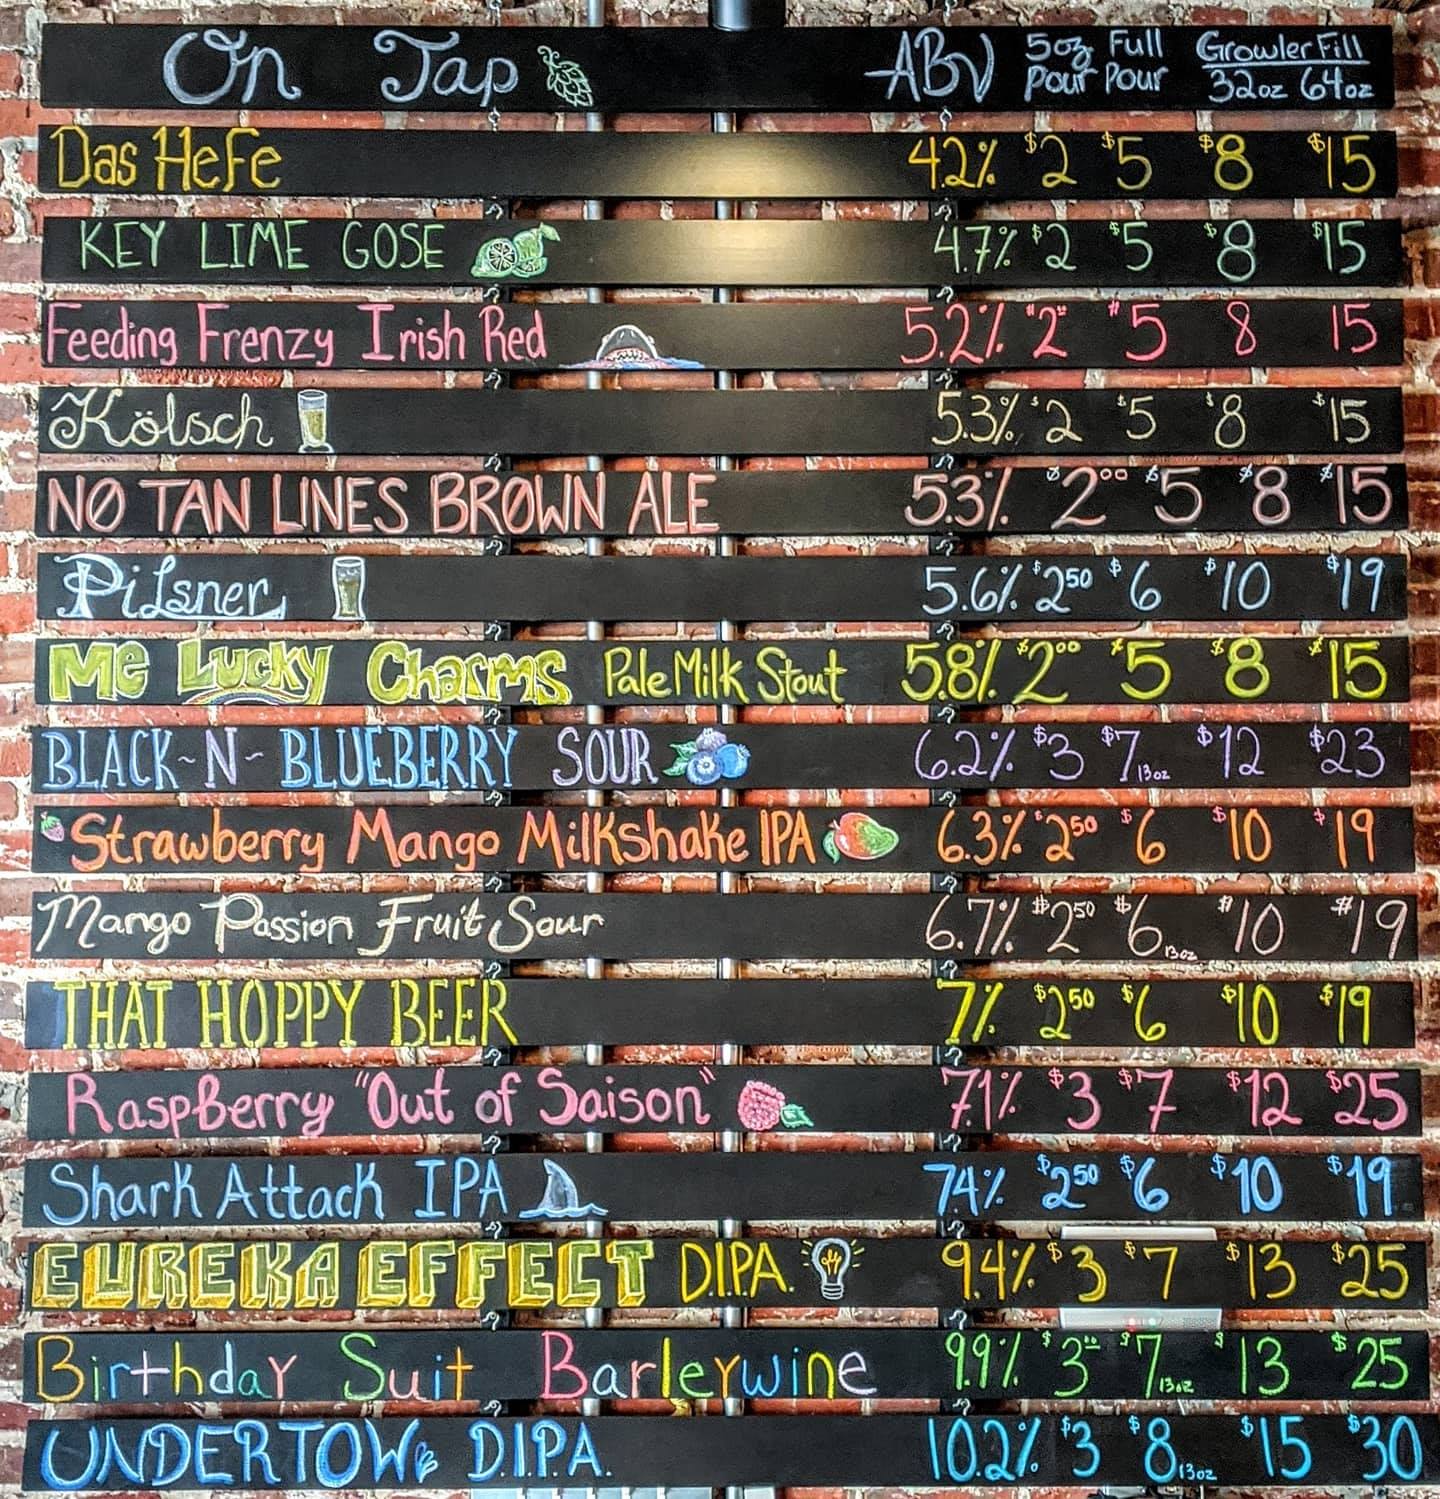 On Tap ABV 5oz Pour Full Pour Growler Fill 32oz 64oz
Das Hefe 4.2% $2 $5 $8 $15
KEY LIME GOSE 4.7% $2 $5 $8 $15
Feeding Frenzy Irish Red 5.2% $2⁰⁰ $5 8 15
Kölsch 5.3% $2 $5 $8 $15
NØ TAN LINES BRØWN ALE 5.3% $2⁰⁰ $5 $8 $15
Pilsner 5.6% $2⁵⁰ $6 $10 $19
Me Lucky Charms Pale Milk Stout 5.8% $2⁰⁰ $5 $8 $15
BLACK-N-BLUEBERRY SOUR 6.2% $3 $7 13oz $12 $23
Strawberry Mango Milkshake IPA 6.3% $2⁵⁰ $6 $10 $19
Mango Passion Fruit Sour 6.7% $2⁵⁰ $6 13oz $10 $19
THAT HOPPY BEER 7% $2⁵⁰ $6 $10 $19
Raspberry "Out of Saison" 7.1% $3 $7 $12 $25
Shark Attack IPA 7.4% $2⁵⁰ $6 $10 $19
EUREKA EFFECT D.I.P.A. 9.4% $3 $7 $13 $25
Birthday Suit Barleywine 9.9% $3⁰⁰ $7 13oz $13 $25
UNDERTOW D.I.P.A. 10.2% $3 $8 13oz $15 $30